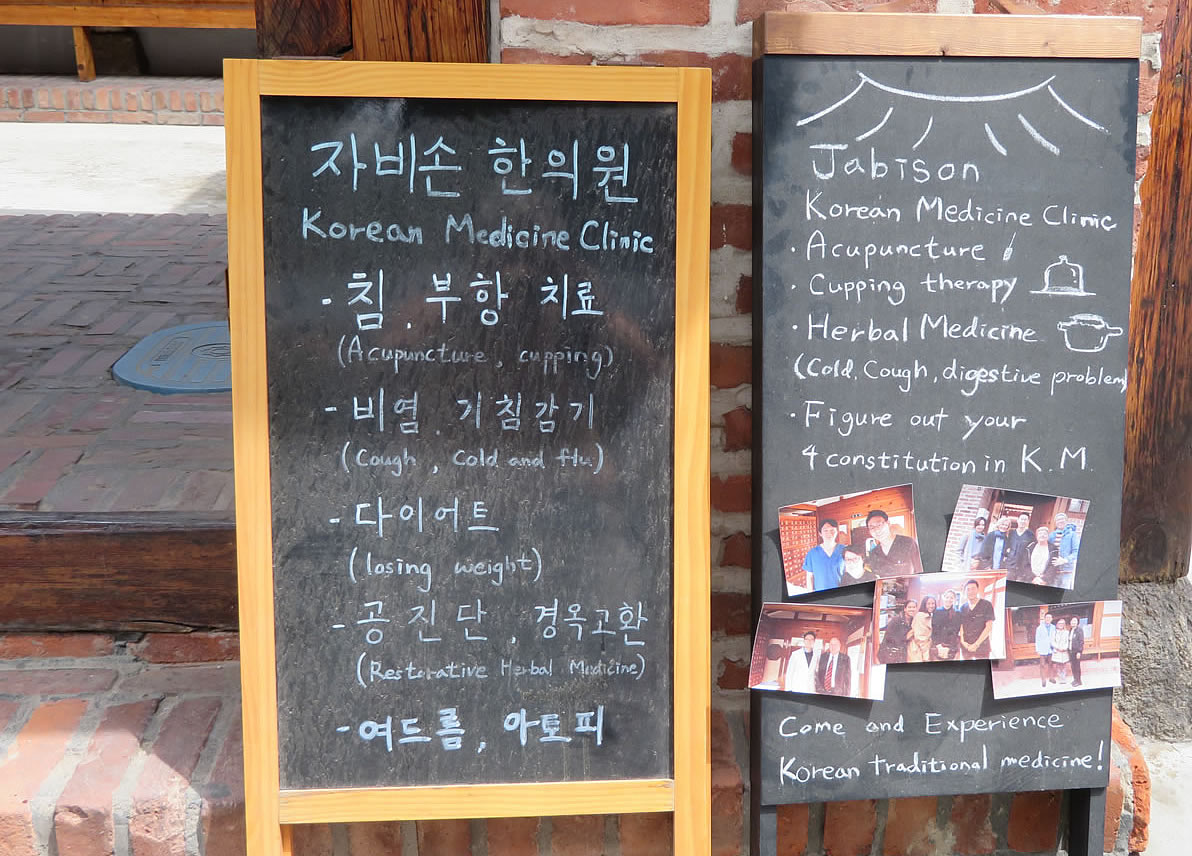 자비손 한의원
Korean Medicine Clinic
· 침 . 부항 치료
(Acupuncture, cupping)
- 비염, 기침감기
(Cough, Cold and flu)
- 다이어트
(losing weight)
- 공진단, 경옥고환
(Restorative Herbal Medicine)
- 여드름, 아토피
Jabison
Korean Medicine Clinic
· Acupuncture
· Cupping therapy
· Herbal Medicine
(Cold, Cough, digestive problem)
· Figure out your
4 constitution in K.M.
Come and Experience
Korean traditional medicine!